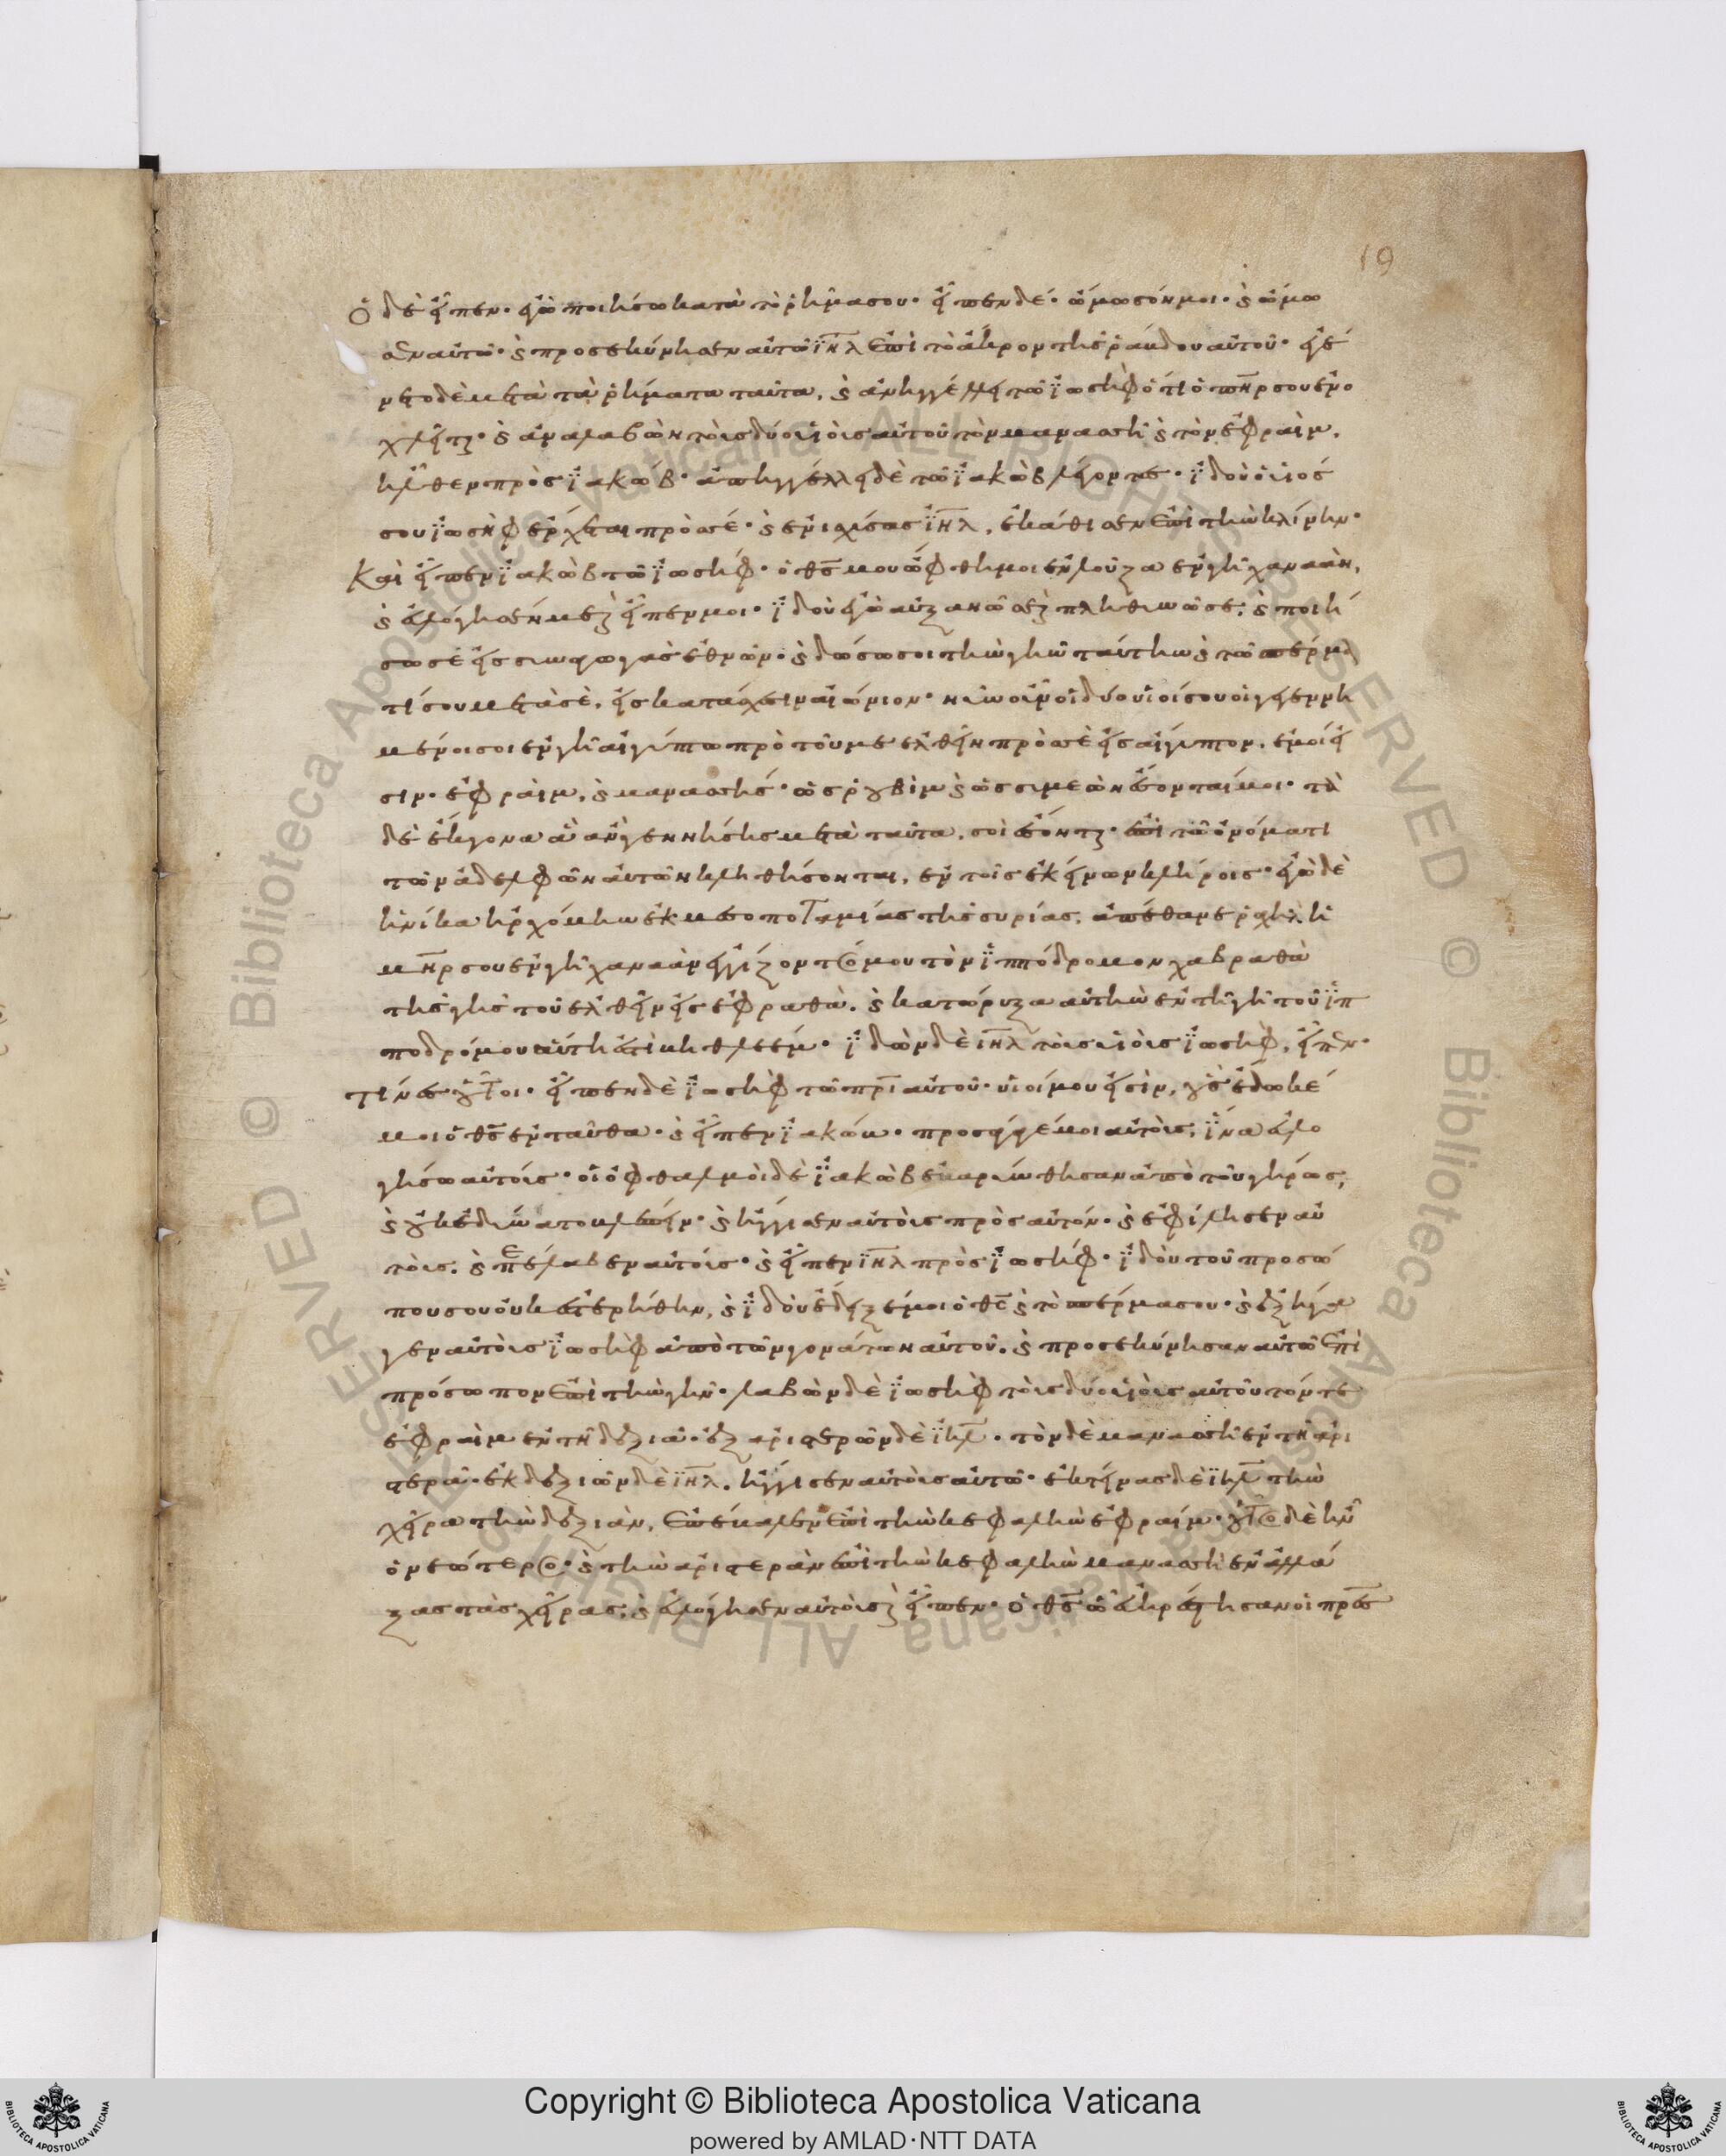 19
ὁ δὲ εἶπεν· ἐγὼ ποιήσω κατὰ τὸ ῥῆμα σου· εἶπεν δέ· ὄμοσόν μοι· καὶ ὤμο
σεν αὐτῶ· καὶ προσεκύνησεν αὐτῶ ϊηλ ἐπὶ τὸ ἄκρον τῆς ῥάβδου αὐτοῦ· ἐγέ
νετο δὲ μετὰ τὰ ῥήματα ταῦτα, καὶ ἀνηγγέλη τῶ ϊωσὴφ ὅτι ὁ πηρ σου ἐνο
χλεῖται· καὶ ἀναλαβὼν τοὺς δύο υἱοὺς αὐτοῦ τὸν μανασσῆ καὶ τὸν ἐφραὶμ,
ἦλθεν πρὸς ϊακώβ· ἀπηγγέλλει δὲ τῶ ϊακὼβ λέγοντες· ϊδοὺ ὁ υἱός
σου ϊωσὴφ ἔρχεται πρὸς σέ· καὶ ἐνισχύσας ϊηλ, ἐκάθισεν ἐπὶ τὴν κλίνην·
Καὶ εἶπεν ϊακὼβ τῶ ϊωσήφ· ὁ θς μου ὤφθη μοι ἐν λούζα ἐν γῆ χαναὰν,
καὶ εὐλόγησέν με καὶ εἶπεν μοι· ϊδοὺ ἐγὼ αὐξανῶ σε καὶ πληθυνῶ σε, καὶ ποιή
σω σὲ εἰς συναγωγὰς ἐθνῶν· καὶ δώσω σοι τὴν γῆν ταύτην καὶ τῶ σπέρμα
τί σου μετὰ σὲ, εἰς κατάσχεσιν αἰώνιον· νῦν οὖν οἱ δύο υἱοί σου οἱ γενη
μένοι σοι ἐν γῆ αἰγύπτω πρὸ τοῦ με ἐλθεῖν πρὸς σὲ εἰς αἴγυπτον, ἐμοί εἰ
σιν· ἐφραὶμ, καὶ μανασσῆς· ὡς ῥουβὶμ καὶ ὡς συμεὼν ἔσονταί μοι· τὰ
δὲ ἔκγονα ἃ ἂν γεννήσης μετὰ ταῦτα, σοὶ ἔσονται· ἐπὶ τῶ ὀνόματι
τῶν ἀδελφῶν αὐτῶν κληθήσονται, ἐν τοῖς ἐκείνων κλήροις· ἐγὼ δὲ
ἡνίκα ἠρχόμην ἐκ μεσοποταμίας τῆς συρίας, ἀπέθανε ῥαχὴλ ἡ
μηρ σου ἐν γῆ χαναὰν ἐγγίζοντός μου τὸν ϊππόδρομον χαβραθὰ
τῆς γῆς τοῦ ἐλθεῖν εἰς ἐφραθὰ. καὶ κατώρυξα αὐτὴν ἐν τῆ γῆ τοῦ ϊπ
ποδρόμου αὕτη ἐστὶ βηθλεέμ· ϊδὼν δὲ ϊηλ τοὺς υἱοὺς ϊωσὴφ, εἶπεν·
τίνες οὗτοι· εἶπεν δὲ ϊωσὴφ τῶ πρι αὐτοῦ· υἱοί μου εἰσὶν, οὓς ἔδωκέ
μοι ὁ θς ἐνταῦθα· καὶ εἶπεν ϊακώβ· προσάγαγέ μοι αὐτοὺς, ἵνα εὐλο
γήσω αὐτούς· οἱ ὀφθαλμοὶ δὲ ϊακὼβ ἐβαρύνθησαν ἀπὸ τοῦ γήρως,
καὶ οὐκ ἐδύνατο βλέπειν· καὶ ἤγγισεν αὐτοὺς πρὸς αὐτόν· καὶ ἐφίλησεν αὐ
τοὺς. καὶ περιέλαβεν αὐτούς· καὶ εἶπεν ϊηλ πρὸς ϊωσήφ· ϊδοὺ τοῦ προσώ
που σου οὐκ ἐστερήθην, καὶ ϊδοὺ ἔδειξέ μοι ὁ θς καὶ τὸ σπέρμα σου· καὶ ἐξήγα
γεν αὐτοὺς ϊωσὴφ ἀπὸ τῶν γονάτων αὐτοῦ. καὶ προσεκύνησαν αὐτῶ ἐπὶ
πρόσωπον ἐπὶ τὴν γῆν· λαβὼν δὲ ϊωσὴφ τοὺς δύο υἱοὺς αὐτοῦ τόν τε
ἐφραὶμ ἐν τῆ δεξιᾶ· ἐξ ἀριστερῶν δὲ ϊηλ· τὸν δὲ μανασσῆ ἐν τῆ ἀρι
στερᾶ· ἐκ δεξιῶν δὲ ϊηλ. ἤγγισεν αὐτοὺς αὐτῶ· ἐκτείνας δὲ ϊηλ τὴν
χεῖρα τὴν δεξιὰν, ἐπέβαλεν ἐπὶ τὴν κεφαλὴν ἐφραίμ· οὗτος δὲ ἦν
ὁ νεώτερος· καὶ τὴν ἀριστερὰν ἐπὶ τὴν κεφαλὴν μανασσῆ ἐναλλά
ξας τὰς χεῖρας, καὶ εὐλόγησεν αὐτοὺς καὶ εἶπεν· ὁ θς ᾧ εὐηρέστησαν οἱ πρες
Copyright © Biblioteca Apostolica Vaticana
powered by AMLAD·NTT DATA